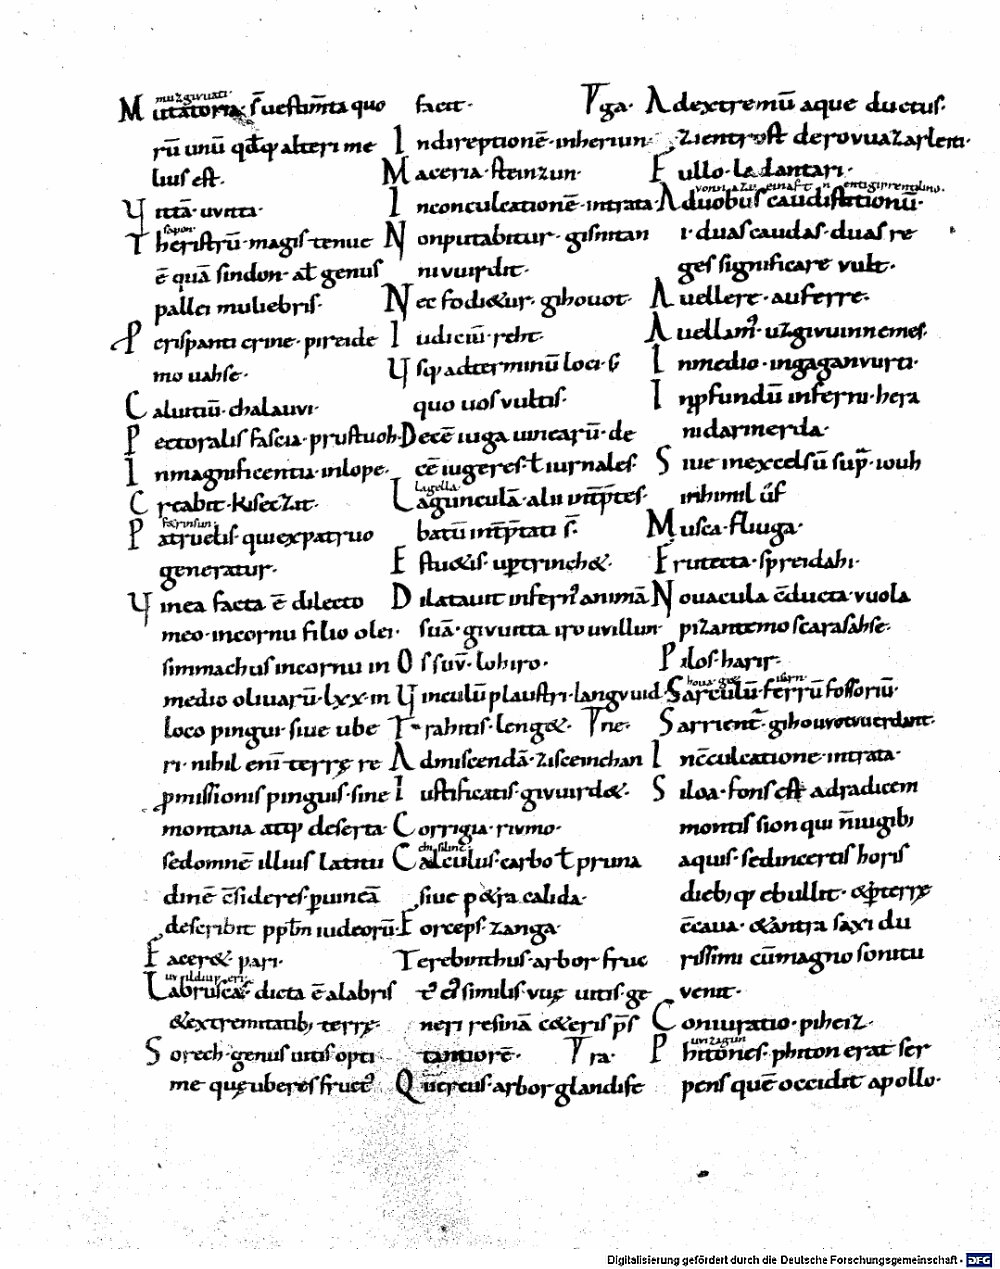 muzgiuuati
Mutatoria· s̄ uestim̄ta quo
rū unū qd̄q; alteri me
lius est·
Vittā· uuitta·
Theristrū· magis tenue
ē quā sindon· at genus
pallei muliebris·
Crispanti crine· pireide
mo uahse·
Calutiū· chalauui·
Pectoralis fascia· prustuoh·
In magnificentia· inlope·
Creabit· kiseczit·
Patruelis· qui ex patruo
generatur·
Vinea facta ē dilecto
meo· in cornu filio olei·
simmachus in cornu in
medio oliuarū· lxx· in
loco pingui siue ube
ri· nihil eni terrę re
p̱missionis pinguis· sine
montana atq; deserta·
sedomnē illius latitu
dinē c̄sideres· puineā
describit pp̄tm iudeorū·
Faceret· pari·
Labruscas· dicta ē a labris
et extremitatib; terrę·
Sorech· genus uitis opti
me quę uberes fruct᷒
facit·
In direptionē· inheriun·
Maceria· steinzun·
In conculcationē· intrata·
Non putabitur· gisnitan
ni vuirdit·
Nec fodietur· gihouot·
Iudiciū· reht·
Vsq; ad terminū loci· 
quo uos vultis·
Decē iuga uinearū· de
cē iugeres· ł iurnales·
lagella·
Lagunculā· alii int̄p̄tes·
batū int̄p̄tati s̄·
Estuetis· up̱trinchet·
Dilatauit infern᷒ animā
suā· givuitta
Os suū· lohiro·
Vinculū plaustri· langvuid
Trahitis· lenget· Tne·
Admiscendā· zisceinchan
Iustificatis· givuirdet·
Corrigia· riumo·
chisilinc·
Calculus· carbo ł pruna
siue petra calida·
Forceps· zanga·
Terebinthus· arbor fruc
similis vuę uitis· ge
neri resinā ceteris p̄s
tantiorē· Tra·
Quercus· arbor glandife
Tga·
Ad extremū aque ductus·
zi entrost dero vuazarleiti·
Fullo·
A duobus caudis titionū·
i· duas caudas· duas re
ges significare vult·
Auellere· auferre·
Auellam᷒· uzgivuinnemes·
In medio· ingaganvurti·
In p̱fundū inferni· hera
nidarinerda·
Siue in excelsū sup̱· iouh
in himil ūf
Musca· fliuga·
Frutecta· spreidahi·
Nouacula c̄ducta· vuola
pizantemo scarasahse·
Pilos· harir·
Sarculū· ferrū fossoriū·
Sarrient᷒· gihouvot vuerdant·
In c̄culcatione· intrata·
Siloa· fons est ad radicem
montis sion qui n̄ iugib;
aquis· sed incertis horis
dieb; q; ebullit· et p̱ terrę
c̄caua· et antra saxi du
rissimi cū magno sonitu
venit·
Coniuratio· piheiz·
vuizagun
Phitones· phiton erat ser
pens quē occidit apollo·
Digitalisierung gefördert durch die Deutsche Forschungsgemeinschaft - DFG